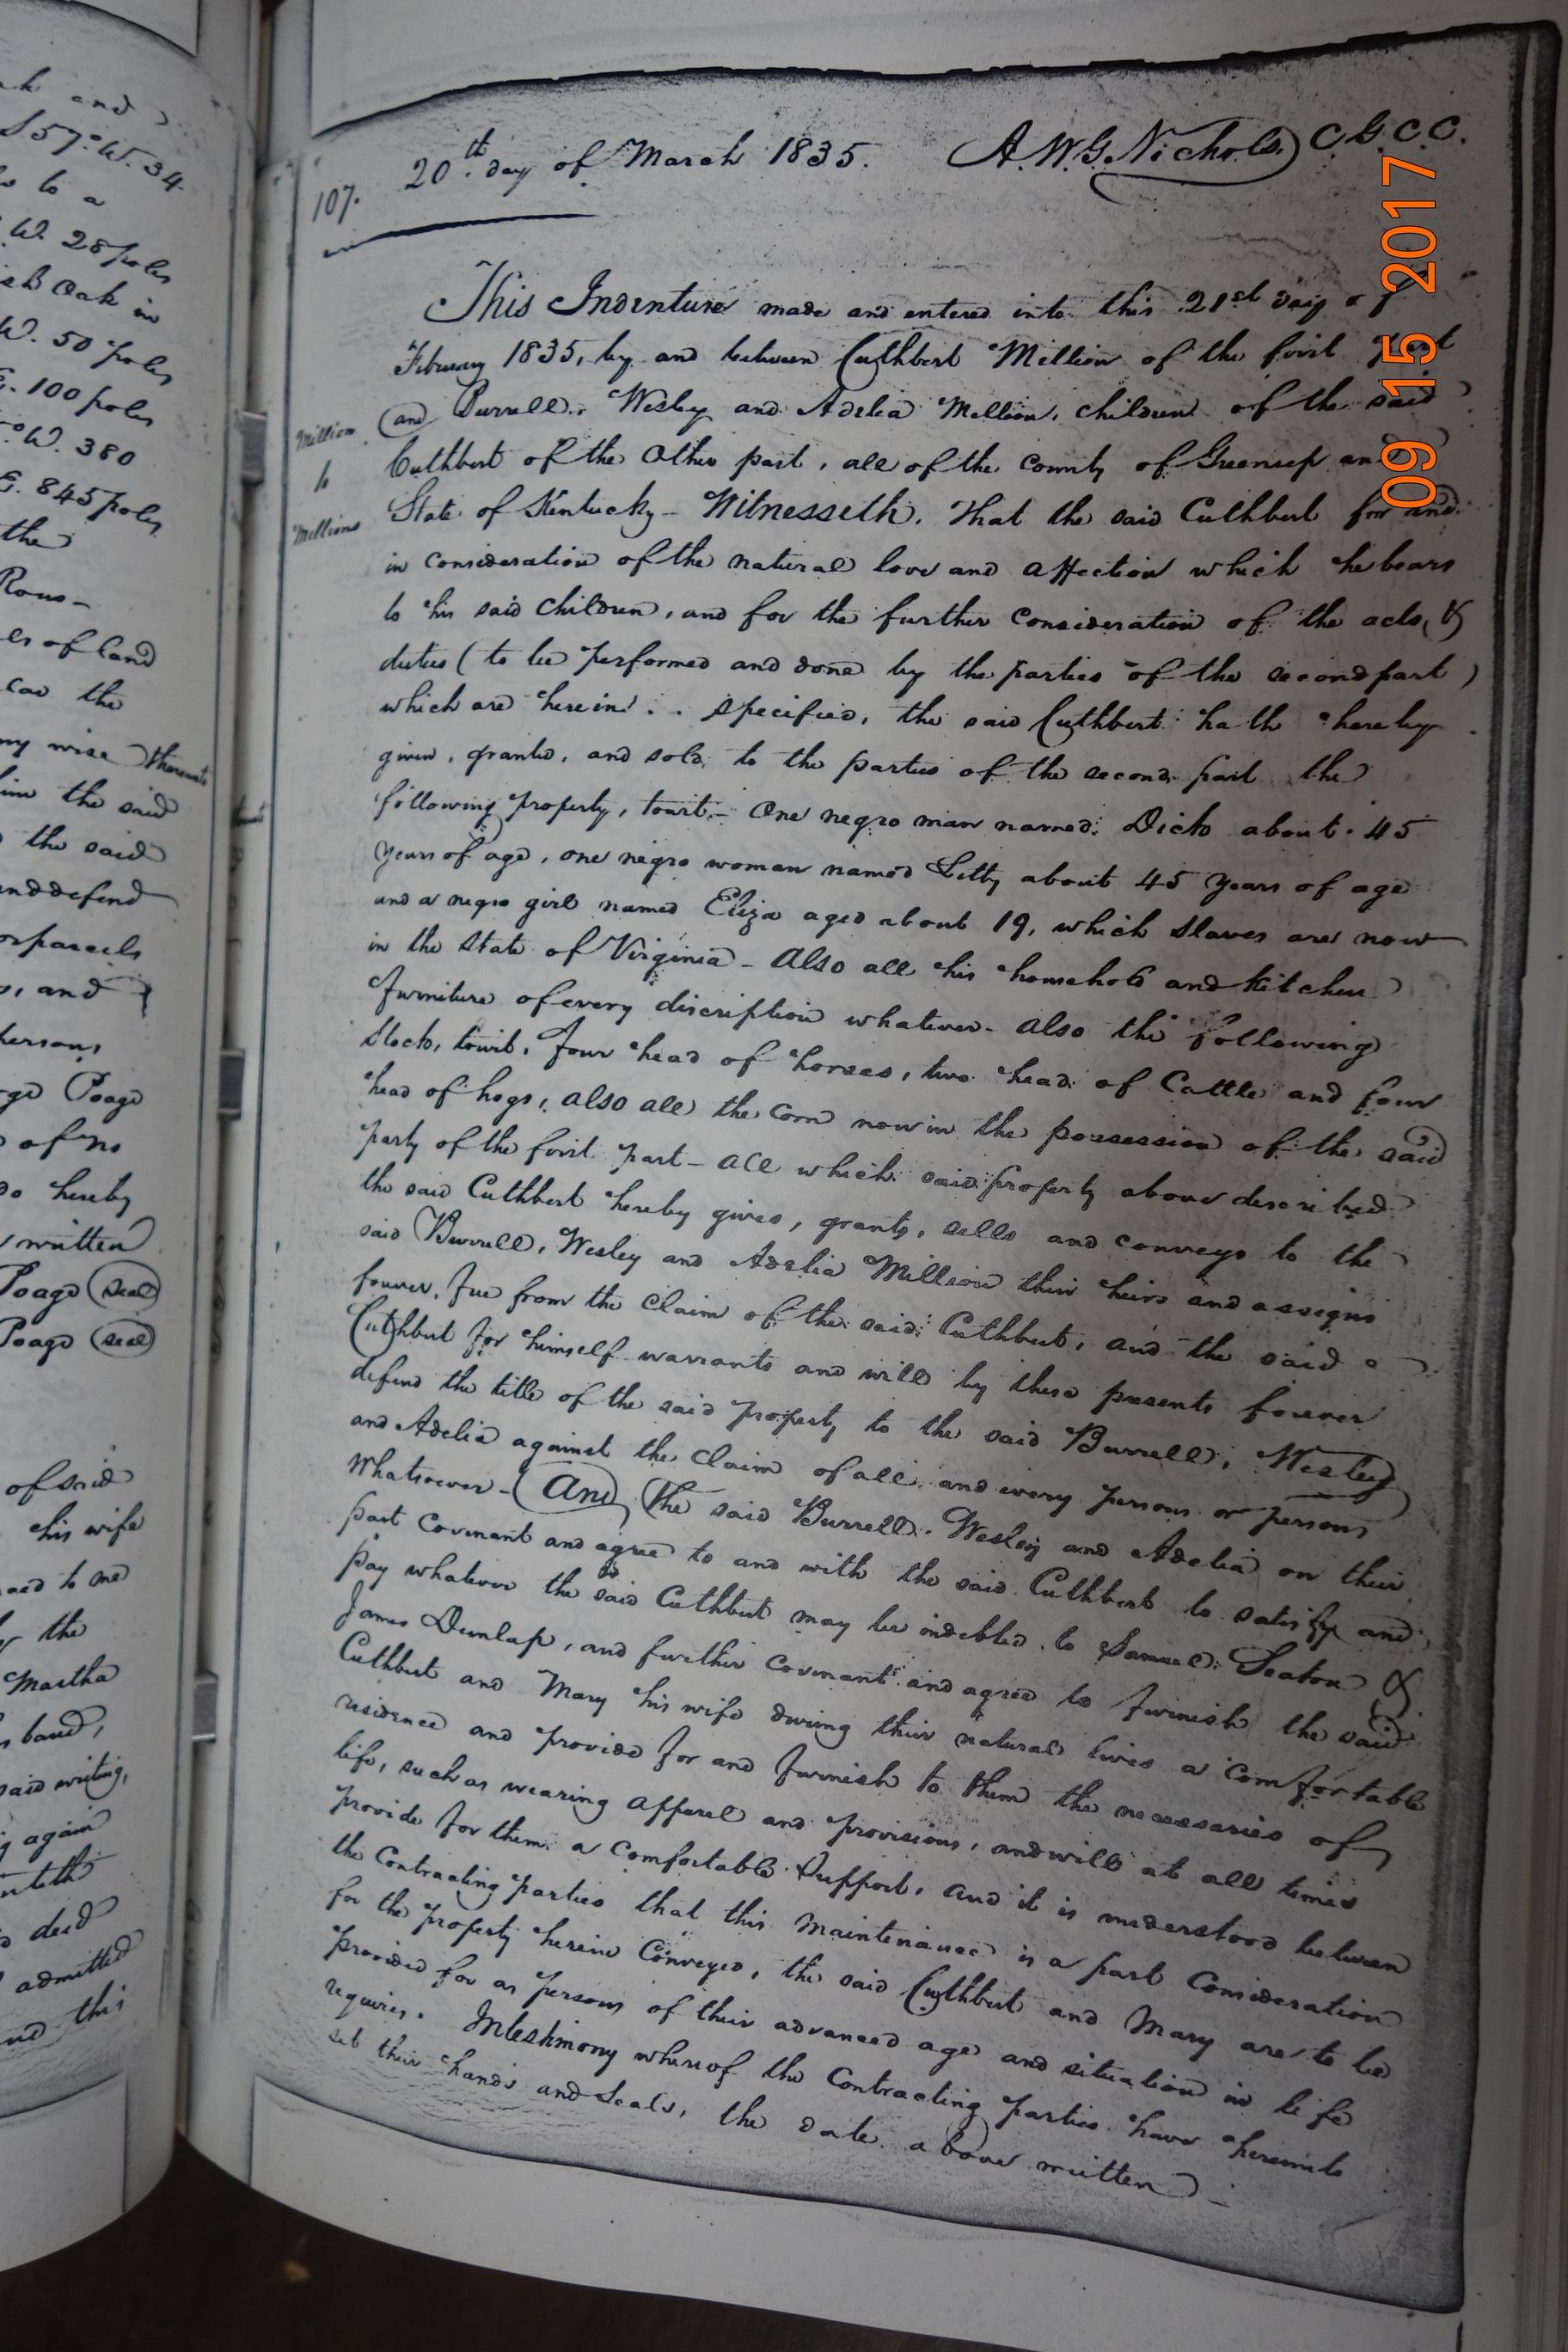 and
S57°.W. 34.
to a
W. 28 poles
Oak in
W. 50 poles
E. 100 poles
°W. 380
E. 845 poles
the
Rous-
of land
the
wise thereunto
the said
the said
and defend
or parcels
and
persons
Poage
of no
do hereby
written
Poage (seal)
Poage (seal)
of said
his wife
to me
the
Martha
said writing,
again
deed
admitted
and this
107.
20th. day of March 1835. A.W.G. Nichols C G C C.
Million
to
Millions
This Indenture made and entered into this 21st day of
February 1835, by and between Cuthbert Million of the first part
and Burrell. Wesley and Adelia Million, children of the said
Cuthbert of the other part, all of the county of Greenup and
State of Kentucky - Witnesseth. That the said Cuthbert for and
in consideration of the natural love and affection which he bears
to his said children, and for the further consideration of the acts, &
duties (to be performed and done by the parties of the second part)
which are herein . . specified, the said Cuthbert hath hereby
given, granted, and sold to the parties of the second part the
following property, towit,- One negro man named Dick about 45
years of age, one negro woman named Letty about 45 years of age
and a negro girl named Eliza aged about 19, which slaves are now
in the State of Virginia - Also all his household and kitchen
furniture of every discription whatever - also the following
Stock, towit, four head of horses, two head of Cattle and four
head of hogs, also all the corn now in the possession of the said
party of the first part - all which said property above described
the said Cuthbert hereby gives, grants, sells and conveys to the
said Burrell, Wesley and Adelia Million their heirs and assigns
forever, free from the claim of the said Cuthbert, and the said
Cuthbert for himself warrants and will by these presents forever
defend the title of the said property to the said Burrell, Wesley
and Adelia against the claim of all and every person or persons
whatsoever - And the said Burrell. Wesley and Adelia on their
part covenant and agree to and with the said Cuthbert to satisfy and
pay whatever the said Cuthbert may be indebted to Samuel Seaton &
James Dunlap, and further covenant and agree to furnish the said
Cuthbert and Mary his wife during their natural lives a comfortable
residence and provide for and furnish to them the necessaries of
life, such as wearing apparel and provisions, and will at all times
provide for them a comfortable support, and it is understood between
the contracting parties that this maintenance is a part consideration
for the property herein conveyed, the said Cuthbert and Mary are to be
provided for as persons of their advanced age and situation in life
requires. In testimony whereof the contracting parties have hereunto
set their hands and seals, the date above written -
09 15 2017